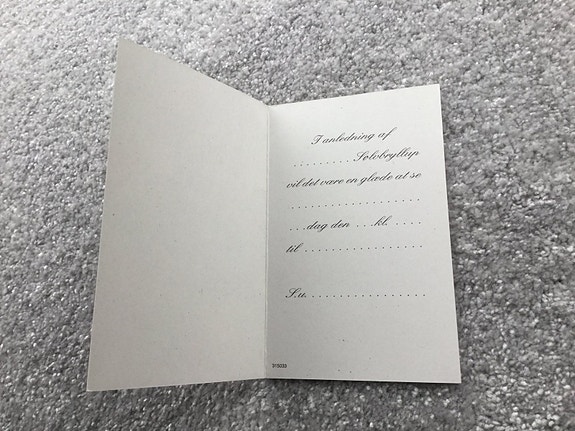 I anledning af
. . . . . . . . . Sølvbryllup
vil det være en glæde at se
. . . . . . . . . . . . . . . . . . .
. . .dag den . . .kl. . . . .
til . . . . . . . . . . . . . . . . .
S.u. . . . . . . . . . . . . . . . .
515033